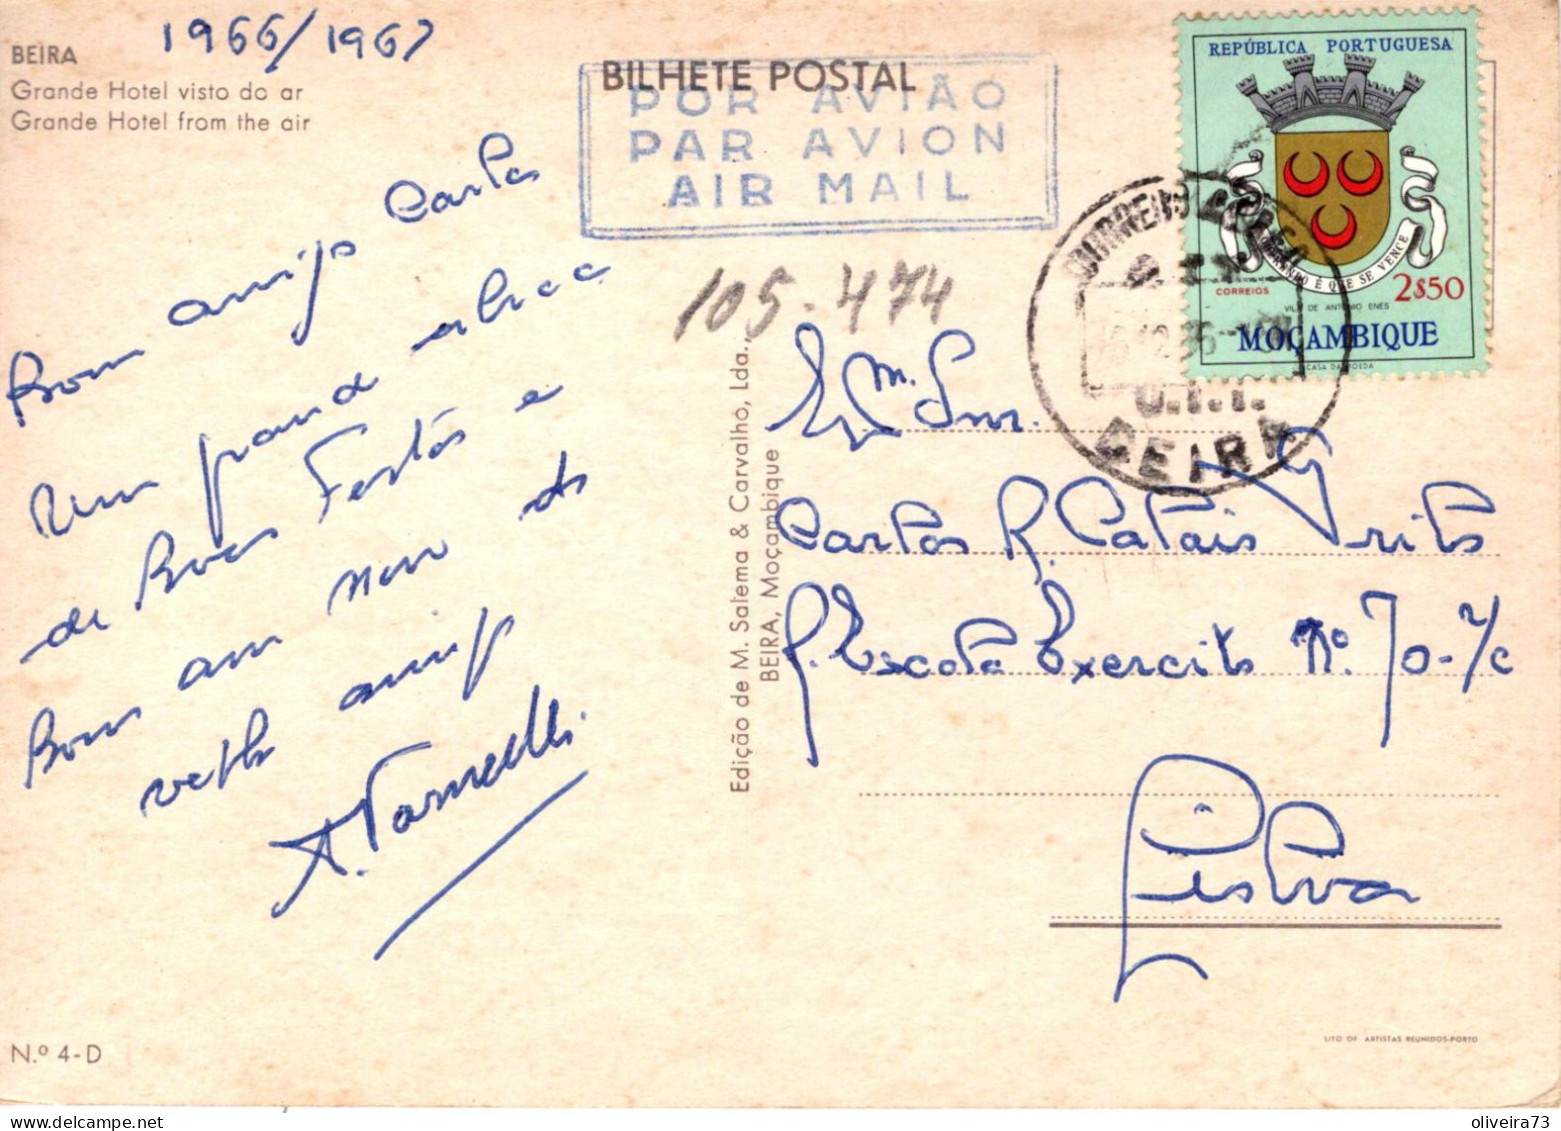 BEIRA
1966/1967
Grande Hotel visto do ar
Grande Hotel from the air
BILHETE POSTAL
POR AVIÃO
PAR AVION
AIR MAIL
REPÚBLICA PORTUGUESA
É QUE SE VENCE
CORREIOS
2$50
VILA DE ANTÓNIO ENES
MOÇAMBIQUE
CASA DA MOEDA
C.T.T.
BEIRA
105-474
Bom amigo Carlos
Um grande abraço
de Boas Festas e
Bom ano novo do
velho amigo
Edição de M. Salema & Carvalho, Lda.,
BEIRA, Moçambique
Exm. Snr.
Carlos R. Catais
R. Escola Exercito Nº. 70-r/c
Lisboa
N.º 4-D
LITO OF. ARTISTAS REUNIDOS-PORTO
oliveira73